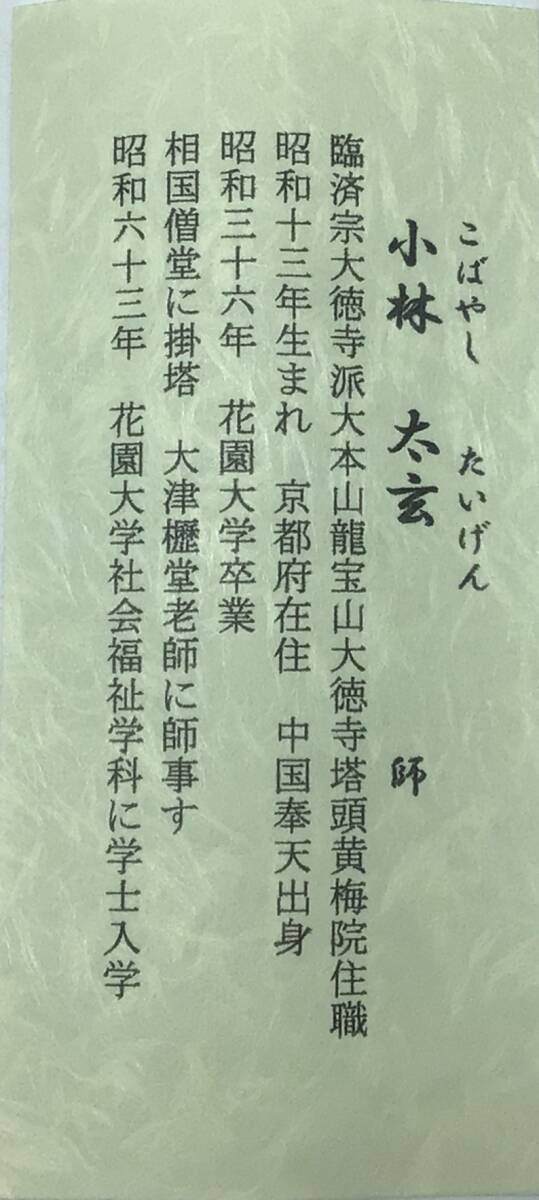 こばやし　たいげん
小林　太玄　師
臨済宗大徳寺派大本山龍宝山大徳寺塔頭黄梅院住職
昭和十三年生まれ　京都府在住　中国奉天出身
昭和三十六年　花園大学卒業
相国僧堂に掛塔　大津櫪堂老師に師事す
昭和六十三年　花園大学社会福祉学科に学士入学